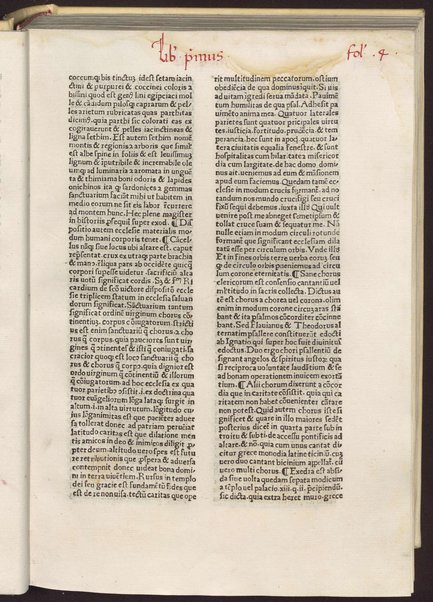 Lib' p̄imus
fol'. 4.
coccum. qͥ bis tinctuꝫ. id est setam iacin
ctini & purpurei & coccinei coloris a
bissini quod est gen9 lini egipciaci mol
le & cādidum pilosqꝫ caprarum & pel
les arietum rubricatas quas parthitas
dicimꝰ. quia parthi sic colorati eas ex
cogitauerunt & pelles iacinctineas &
ligna sethim. Est autem sethim nomē
montis & regionis & arboris que simil'
est albe spine in foliis & est leuissimuꝫ
lignum & iputribile & incremabile ole
umqꝫ ad luminaria & aromata in ungu
ēta & thimiama boni odoris & lapides
onichinos ita qꝫ sardonicēs & gemmas
sanctuarium faciāt mihi ut habitem in
medio eorum ne si eis labor recurrere
ad montem hunc. Hec plene magister
in historiis, p̄sequiť super exod. ¶ Dis
positio autem ecclesie materialis mo
dum humani corporis tenet. ¶ Cācel
lus nāqꝫ siue locus ubi altare est. caput
rep̄sentat. crux ex utraqꝫ parte brachia
& manꝰ. reliqua pars ab occidēte quicqͥd
corpori supesse uidetur. Sacrificiū alta
ris uota significat cordis. Sꝫ & s'm Ri
cardum de sc̄o uictore dispositio eccle
sie triplicem statum in ecclesia saluan
dorum significat. Sāctuarium tantum
significat ordinē uirginum chorus cō
tinentiuꝫ. corpus cōiugatorum. strictiꝰ
est enim sanctuariū qꝫ chorus. & cho
rus qꝫ corpus. quia pauciores sunt uir
gines qꝫ continentes & isti qꝫ coniugati. sa
cracior quoqꝫ est loco sanctuariū qꝫ cho
rus & chorus qꝫ corpꝰ. quia dignior est
ordo uirginum qꝫ cōtinentiū & illorum
qꝫ cōiugatorum ad hoc ecclesia ex qua
tuor parietibꝰ osistit. i. ex doctrina qua
tuor euāgeliorum lōga lata qꝫ surgit in
altum. i. in alta uirtutum. lōgitudo cu
ius lōganimitas est qua pacienter aduer
sa tollerat donec ad patriam perueniat.
latitudo caritas est que dilatione men
tis amicos in deo & inimicos diligit p
pter deum. altitudo uero spes est futu
re retributionis que p̄spera & aduersa
contempnit donec uideat bona domi
ni in terra uiuētiem. Rursus in templo
dei seu gracie est fundamētū fides que
est de re non uisa. tectū caritas que ope
rit multitudinem peccatorum. ostium
obediēcia de qua dominus inquit. Si uis
ad uitam igredi serua mādata. Pauimē
tum humilitas de qua psal. Adhesit pa
uimēto anima mea. Quatuor laterales
parietes sunt quatuor pricipales uirtu
tes. iusticia, fortitudo. prudēcia. & tem
perancia. hec sunt in apoc̄. quatuor la
tera ciuitatis equalia. Fenestre. & sunt
hospitalitas cum hilaritate & misericor
dia cum largitate. de hac domo domi
nus ait. ueniemus ad eum & mansionem
apud eum faciemus. Quedam tamē eccl'
sie in modum crucis formant̄. ad no
tandum nos mundo crucifigi seu cruci
fixū sequi debemus. iuxta illd. Qui uult
uenire post me abneget semetipsum & tol
lat cruce suam & sequatur me. Nō
nulle etiam in modum circuli rotunde
formant̄ que significant ecclesiam dila
tatā esse per circulum orbis. Vnde illd
Et in fines orbis terre uerba eorum. seu
qꝫ de circulo orbis pueniemus ad circu
lum corone eternitatis. ¶ Sane chorus
clericorum est consensio cantantiū uel
multitudo in sacris collecta. Dictus au
tē est chorus a chorea uel corona. olim
enim in modum corone circa aras stā
bant & ita psalmos cōcorditer cōcine
bant. Sed Flauianus & Theodorus al
ternatim psallere constituerūt edocti
ab Ignatio qui super hoc fuit diuinitus
edoctus. Duo ergo chori psallentiū de
signant angelos & spiritus iustorꝫ. qua
si reciproca uoluntate laudātium & se
ad bonam operationem inuicem exorti
tium. ¶ Alii chorum dixerunt a cōcor
dia que in caritate cōsistit. quia qui ca
ritatem non habet cōuenienter cātare
non potest. Quid autem chorus iste si
gnificet & quare in illo maiores sedēt
posterius dicetˢ in quarta parte sub in
troitu & subti. de accessu pontificis ad
altare. & nō. quia cum unus cantat di
citur grece monodia latine ticiniū. cuꝫ
uero duo cantant bicinium appellat̄. cū
uero multi chorus. ¶ Exedra est absi
da siue uolta quedam sepata modicum
a tēplo uel palacio. xiii. q. ii. p̄cipiendū.
sic dicta. quia extra heret muro. grece